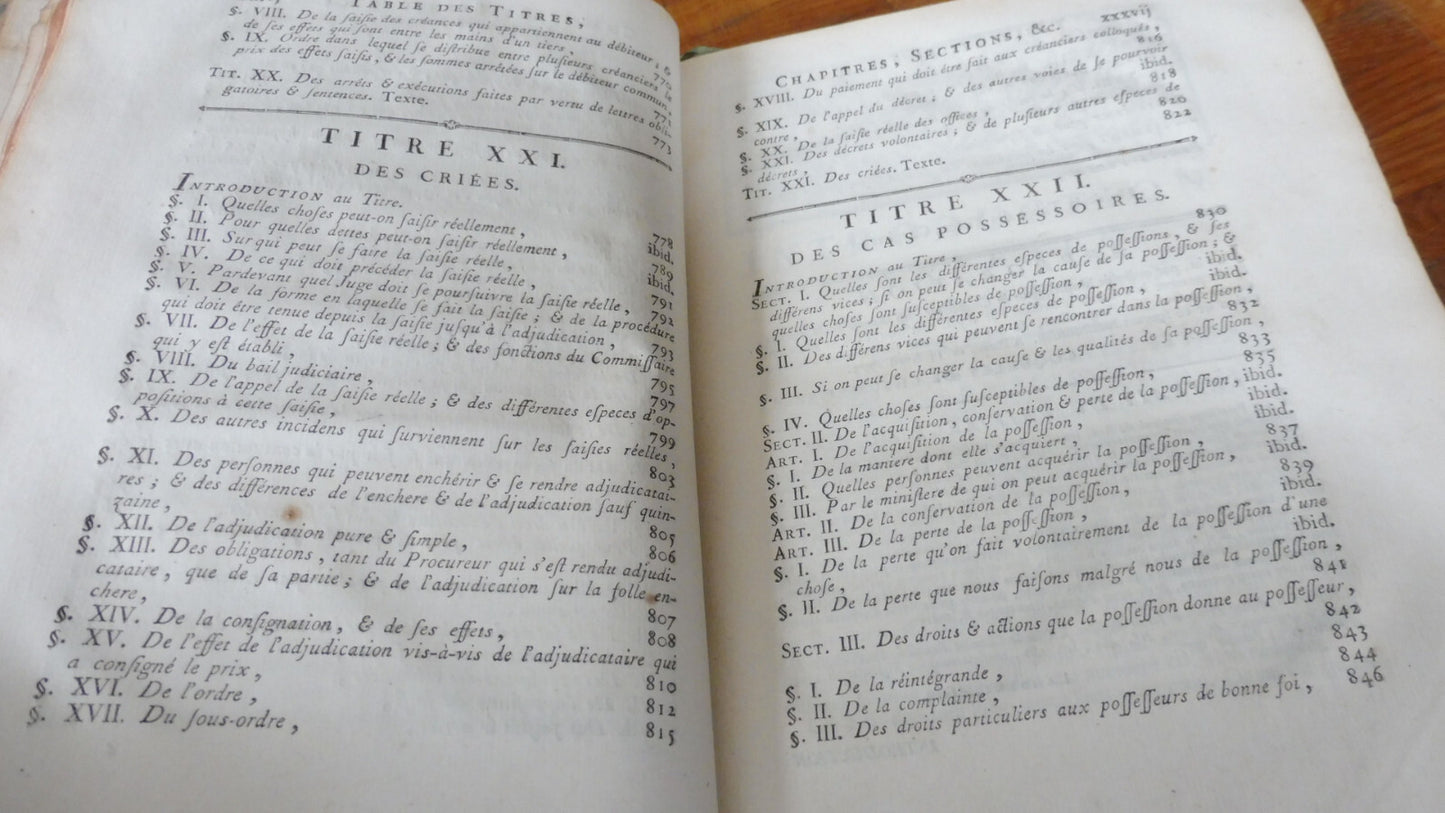 TABLE DES TITRES,
§. VIII. De la ſaiſie des créances qui appartiennent au débiteur; &
de ſes effets qui ſont entre les mains d'un tiers, 770
§. IX. Ordre dans lequel ſe diſtribue entre pluſieurs créanciers le
prix des effets ſaiſis, & les ſommes arrêtées ſur le débiteur commun,
771
TIT. XX. Des arrêts & exécutions faites par vertu de lettres obli-
gatoires & ſentences. Texte. 773
TITRE XXI.
DES CRIÉES.
INTRODUCTION au Titre.
§. I. Quelles choſes peut-on ſaiſir réellement, 778
§. II. Pour quelles dettes peut-on ſaiſir réellement, ibid.
§. III. Sur qui peut ſe faire la ſaiſie réelle, 789
§. IV. De ce qui doit précéder la ſaiſie réelle, ibid.
§. V. Pardevant quel Juge doit ſe pourſuivre la ſaiſie réelle, 791
§. VI. De la forme en laquelle ſe fait la ſaiſie; & de la procédure 792
qui doit être tenue depuis la ſaiſie juſqu'à l'adjudication, 793
§. VII. De l'effet de la ſaiſie réelle; & des fonctions du Commiſſaire
qui y eſt établi, 795
§. VIII. Du bail judiciaire, 797
§. IX. De l'appel de la ſaiſie réelle; & des différentes eſpeces d'op-
poſitions à cette ſaiſie, 799
§. X. Des autres incidens qui ſurviennent ſur les ſaiſies réelles,
803
§. XI. Des perſonnes qui peuvent enchérir & ſe rendre adjudicatai-
res; & des différences de l'enchere & de l'adjudication ſauf quin-
zaine, 805
§. XII. De l'adjudication pure & ſimple, 806
§. XIII. Des obligations, tant du Procureur qui s'eſt rendu adjudi-
cataire, que de ſa partie; & de l'adjudication ſur la folle en-
chere, 807
§. XIV. De la conſignation, & de ſes effets, 808
§. XV. De l'effet de l'adjudication vis-à-vis de l'adjudicataire qui
a conſigné le prix, 810
§. XVI. De l'ordre, 812
§. XVII. Du ſous-ordre, 815
CHAPITRES, SECTIONS, &c. xxxvij
§. XVIII. Du paiement qui doit être fait aux créanciers colloqués, 816
§. XIX. De l'appel du décret; & des autres voies de ſe pourvoir
contre, ibid.
§. XX. De la ſaiſie réelle des offices, 818
§. XXI. Des décrets volontaires; & de pluſieurs autres eſpeces de
décrets, 820
TIT. XXI. Des criées. Texte. 822
TITRE XXII.
DES CAS POSSESSOIRES.
INTRODUCTION au Titre, 830
SECT. I. Quelles ſont les différentes eſpeces de poſſeſſions, & ſes
différens vices; ſi on peut ſe changer la cauſe de ſa poſſeſſion; &
quelles choſes ſont ſuſceptibles de poſſeſſion, ibid.
§. I. Quelles ſont les différentes eſpeces de poſſeſſion, ibid.
§. II. Des différens vices qui peuvent ſe rencontrer dans la poſſeſſion,
832
§. III. Si on peut ſe changer la cauſe & les qualités de ſa poſſeſſion,
833
§. IV. Quelles choſes ſont ſuſceptibles de poſſeſſion, 835
SECT. II. De l'acquiſition, conſervation & perte de la poſſeſſion, ibid.
ART. I. De l'acquiſition de la poſſeſſion, ibid.
§. I. De la maniere dont elle s'acquiert, ibid.
§. II. Quelles perſonnes peuvent acquérir la poſſeſſion, 837
§. III. Par le miniſtere de qui on peut acquérir la poſſeſſion, ibid.
ART. II. De la conſervation de la poſſeſſion, 839
ART. III. De la perte de la poſſeſſion, ibid.
§. I. De la perte qu'on fait volontairement de la poſſeſſion d'une
choſe, ibid.
§. II. De la perte que nous faiſons malgré nous de la poſſeſſion,
841
SECT. III. Des droits & actions que la poſſeſſion donne au poſſeſſeur,
842
§. I. De la réintégrande, 843
§. II. De la complainte, 844
§. III. Des droits particuliers aux poſſeſſeurs de bonne foi, 846